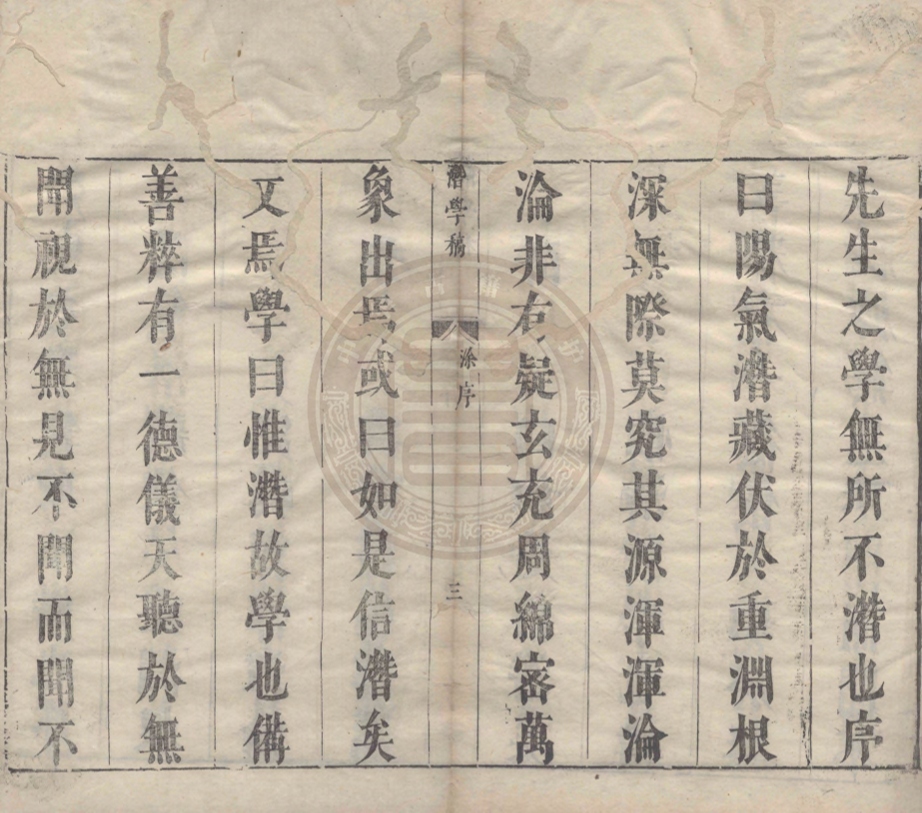 先生之學無所不潛也序
曰陽氣潛藏伏於重淵根
深無際莫究其源渾渾淪
淪非疑玄充周綿密萬
潛學稿
涂序
三
象出焉或曰如是信潛矣
又焉學曰惟潛故學也備
善粹有一德儀天聽於無
聞視於無見不聞而聞不